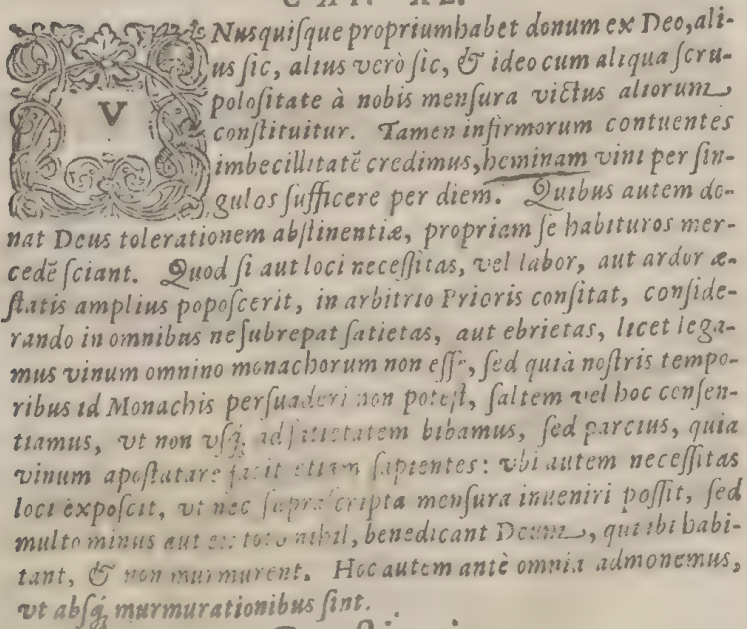 CAP. XL.
VNusquisque propriumhabet donum ex Deo, ali-
us sic, alius verò sic, & ideo cum aliqua scru-
polositate à nobis mensura victus aliorum
constituitur. Tamen infirmorum contuentes
imbecillitatē credimus, heminam vini per sin-
gulos sufficere per diem. Quibus autem do-
nat Deus tolerationem abstinentiæ, propriam se habituros mer-
cedē sciant. Quod si aut loci necessitas, vel labor, aut ardor æ-
statis amplius poposcerit, in arbitrio Prioris consitat, conside-
rando in omnibus ne subrepat satietas, aut ebrietas, licet lega-
mus vinum omnino monachorum non esse, sed quià nostris tempo-
ribus id Monachis persuaderi non potest, saltem vel hoc consen-
tiamus, vt non vsq; ad satietatem bibamus, sed parcius, quia
vinum apostatare facit etiam sapientes: vbi autem necessitas
loci exposcit, vt nec suprascripta mensura inueniri possit, sed
multo minus aut ex toto nihil, benedicant Deum, qui ibi habi-
tant, & non murmurent. Hoc autem antè omnia admonemus,
vt absq; murmurationibus sint.